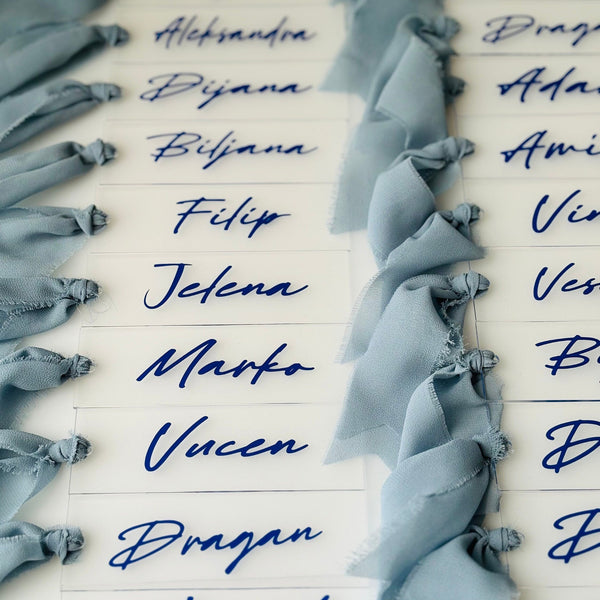 Aleksandra
Dijana
Biljana
Filip
Jelena
Marko
Vucen
Dragan
Draga
Ada
Ami
Vi
Ves
B
D
D